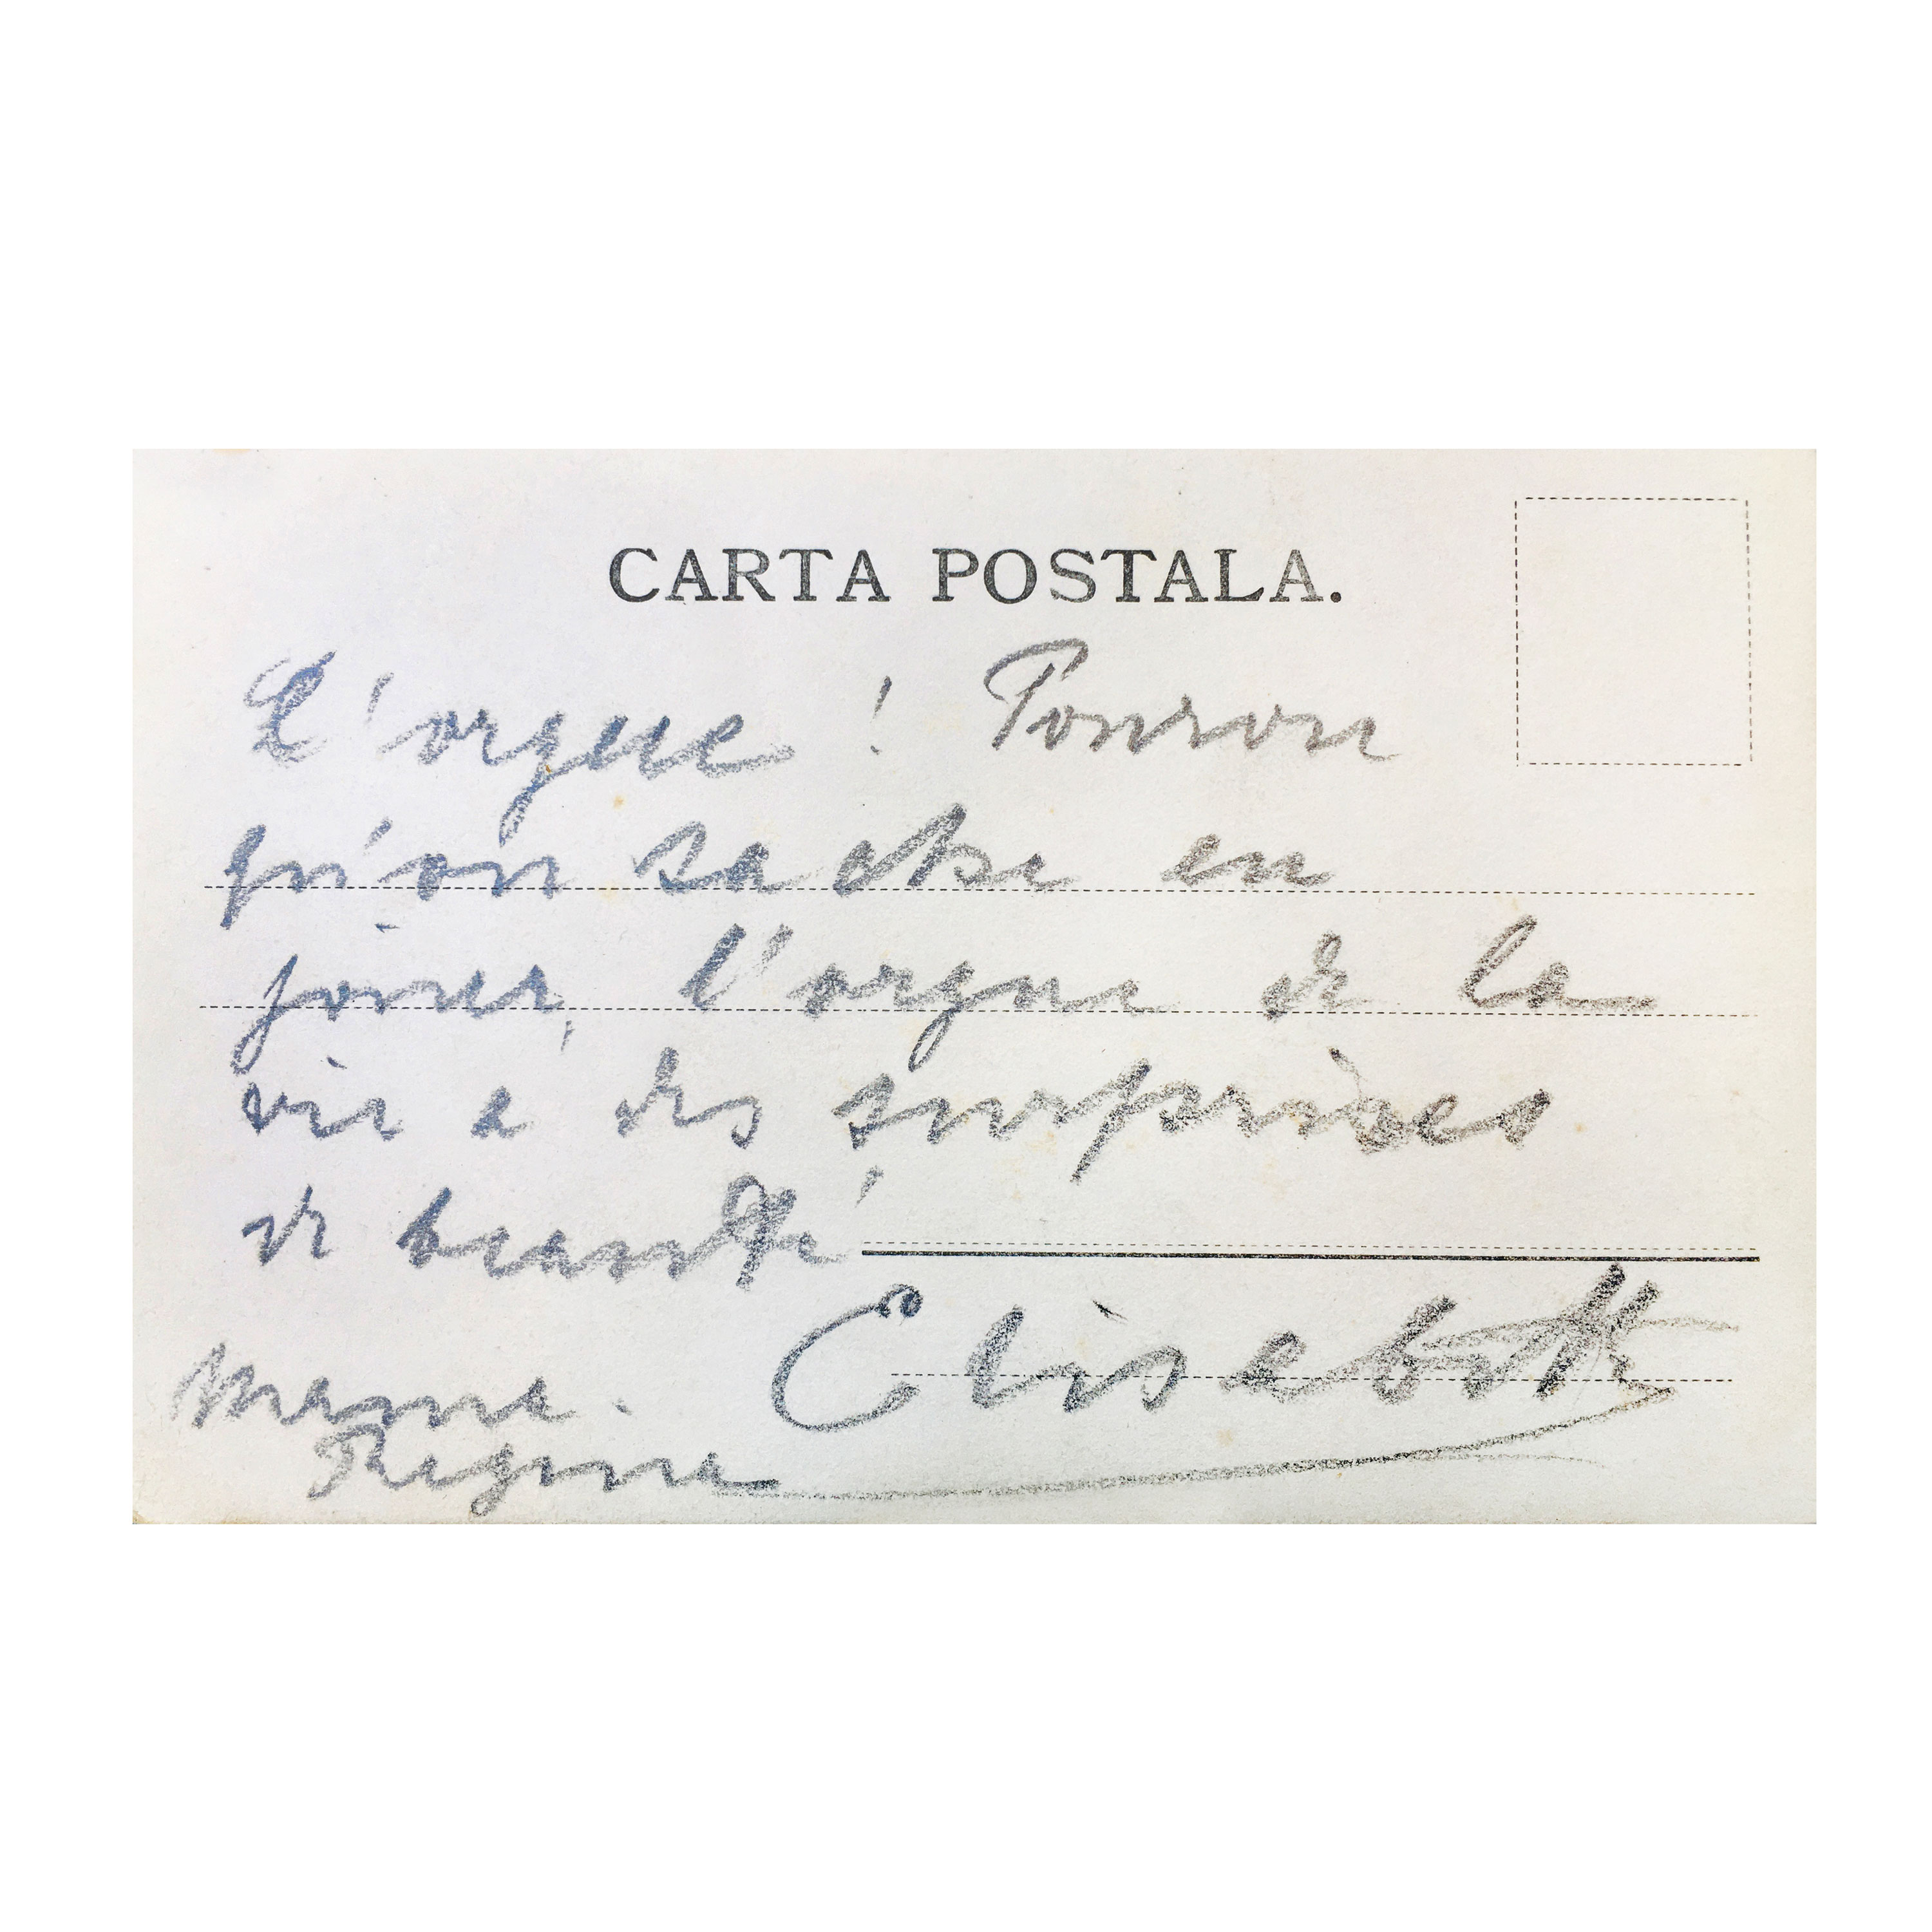 CARTA POSTALA.
L'orgue! Pourvu
qu'on sache en
jouer, l'orgue de la
vie a des surprises
de beauté
Elisabeth
Mama.
Regina